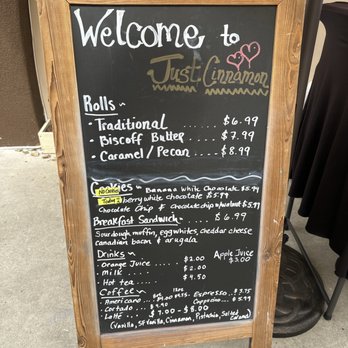 Welcome to
Just Cinnamon
Rolls ~
• Traditional ..... $6.99
• Biscoff Butter ..... $7.99
• Caramel / Pecan .... $8.99
Cookies ~ Banana White Chocolate $5.99
No Cookies
Today :(
berry white chocolate $5.99
Chocolate Chip & Chocolate chip walnut $5.99
Breakfast Sandwich ~ $6.99
Sourdough muffin, egg whites, cheddar cheese
canadian bacon & arugala
Drinks ~
• Orange Juice ...... $2.00
Apple Juice
$3.00
• Milk ........ $2.00
• Hot tea .... $4.50
Coffee ~ 12oz
• Americano $4.00 Espresso $3.75
• Cortado $4.90 Cappucino $5.99
• Latte $7.00 - $8.00
(Vanilla, SF Vanilla, Cinnamon, Pistachio, Salted
Caramel)